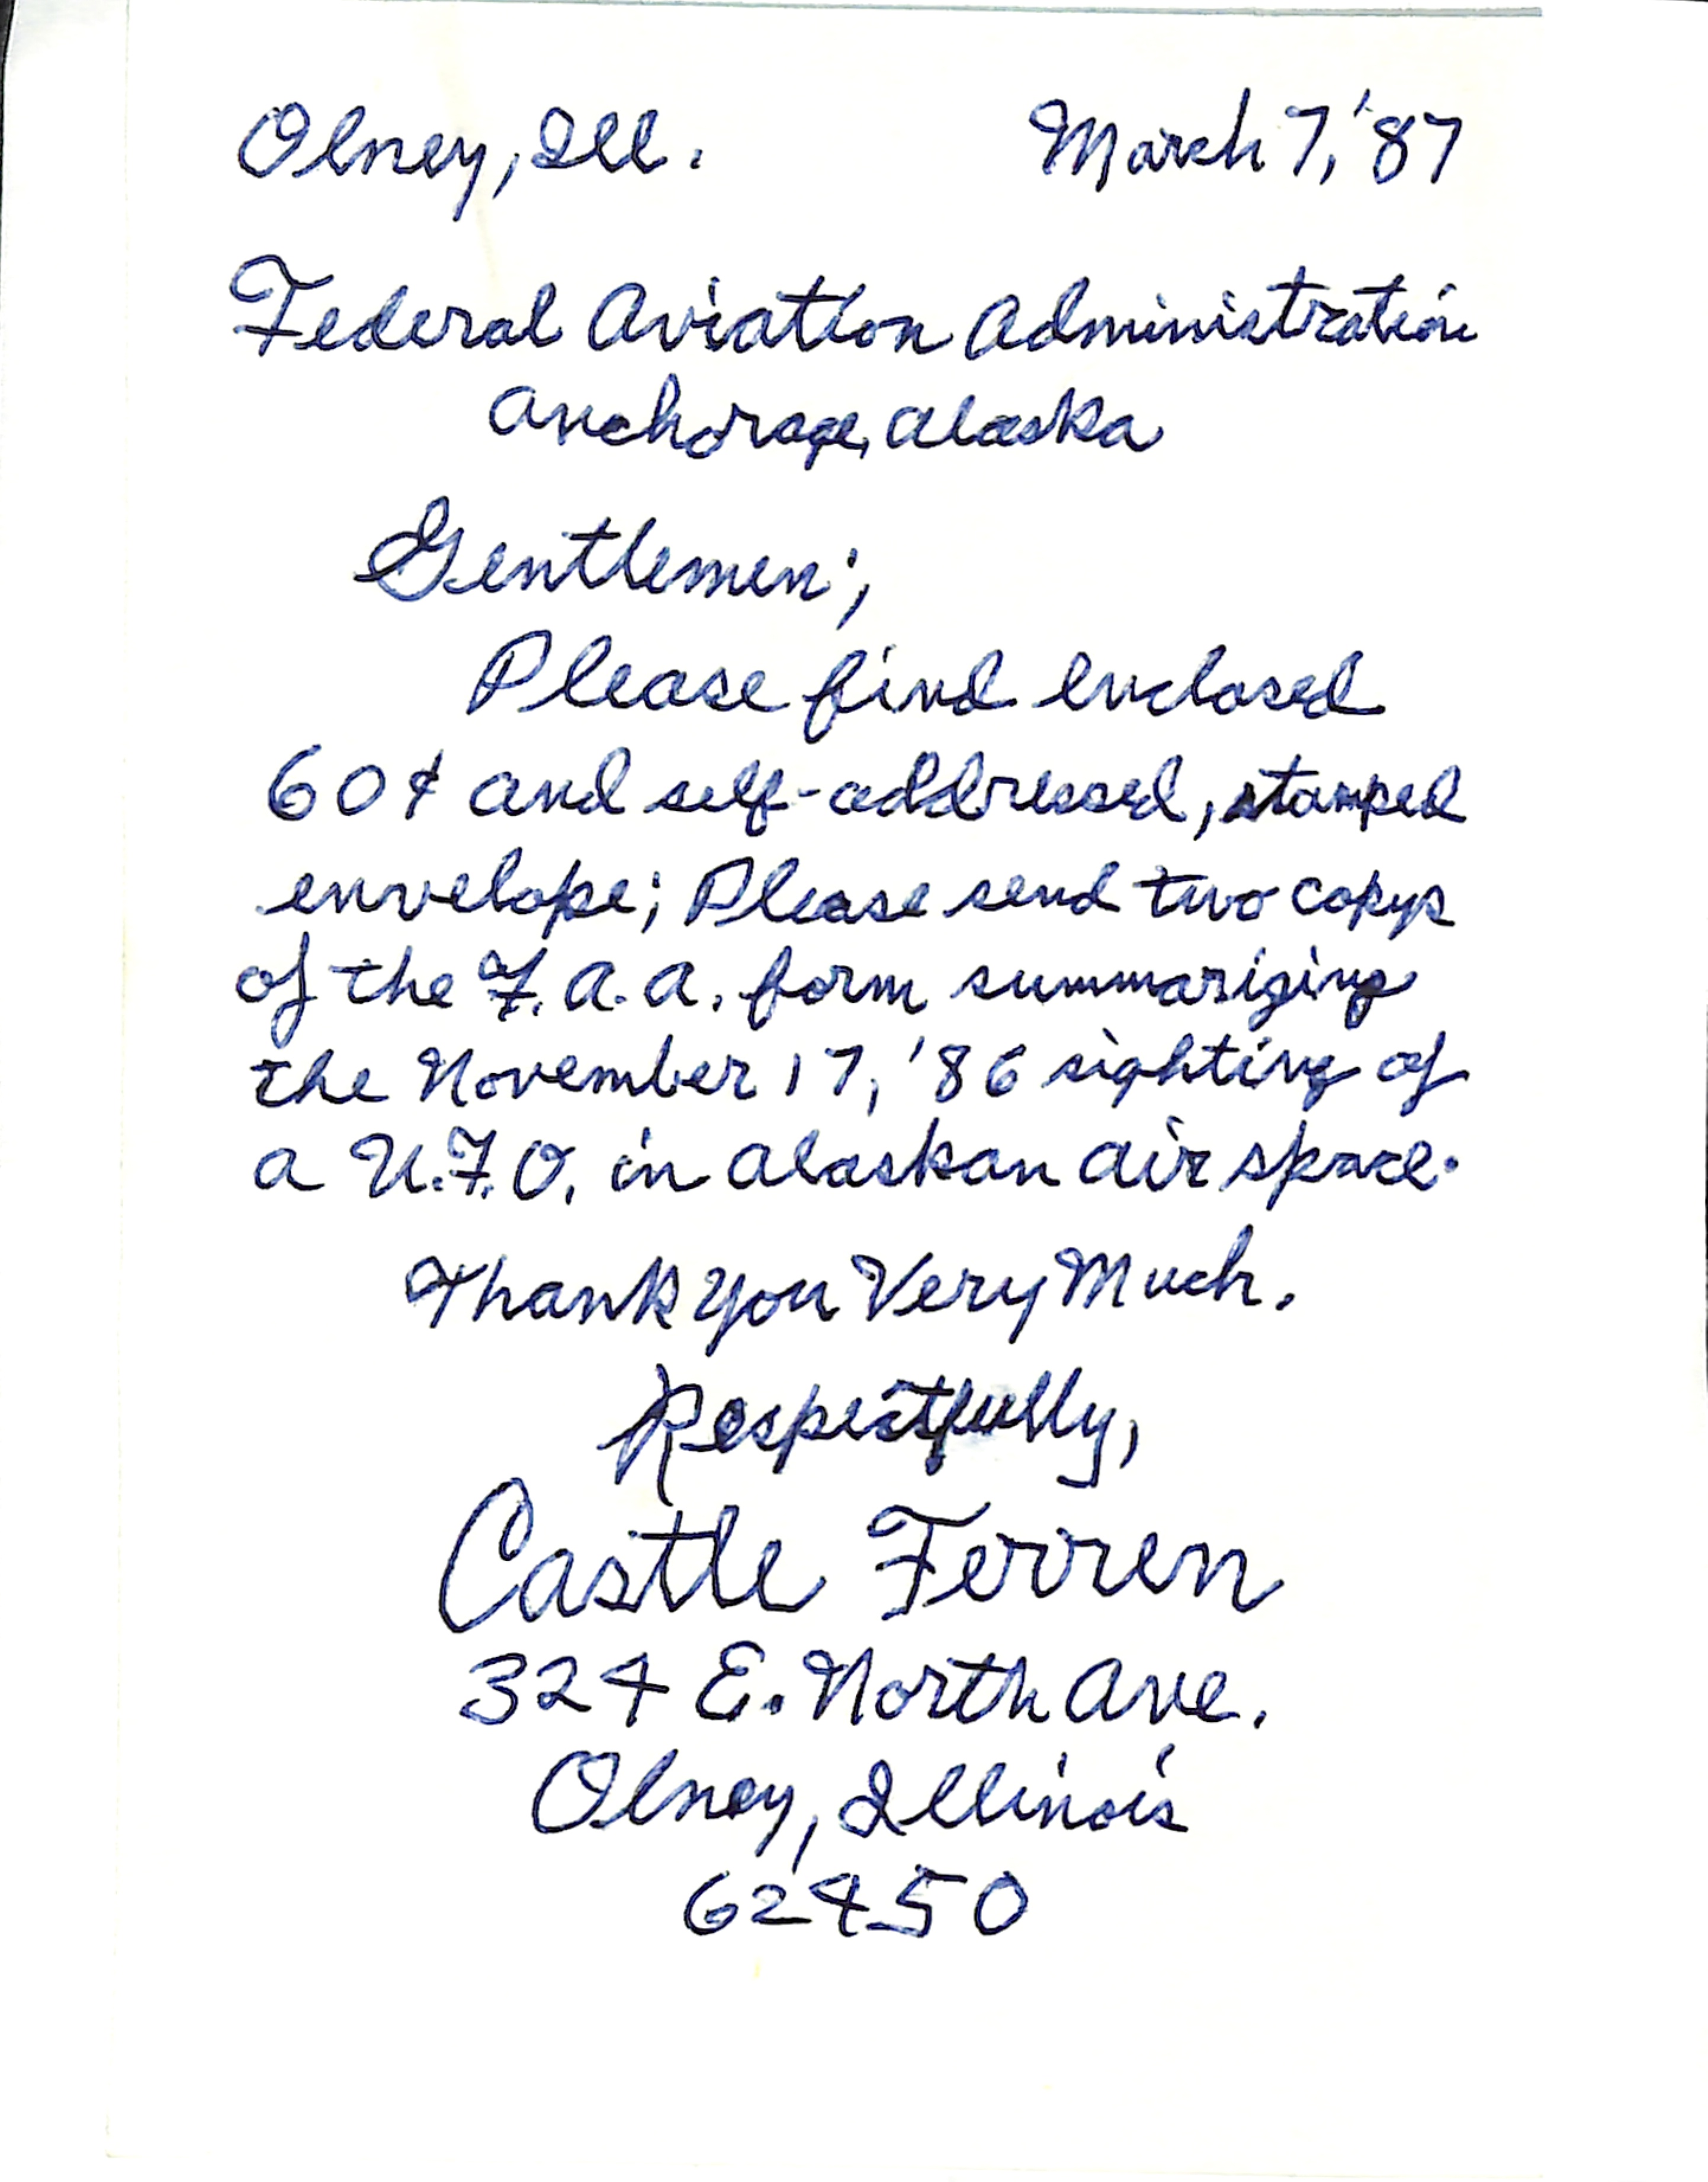 Olney, Ill. March 7, '87
Federal Aviation Administration
Anchorage, Alaska
Gentlemen;
Please find enclosed
60¢ and self-addressed, stamped
envelope; Please send two copys
of the F.A.A. form summarizing
the November 17, '86 sighting of
a U.F.O. in Alaskan air space.
Thank You Very Much.
Respectfully,
Castle Ferren
324 E. North Ave.
Olney, Illinois
62450